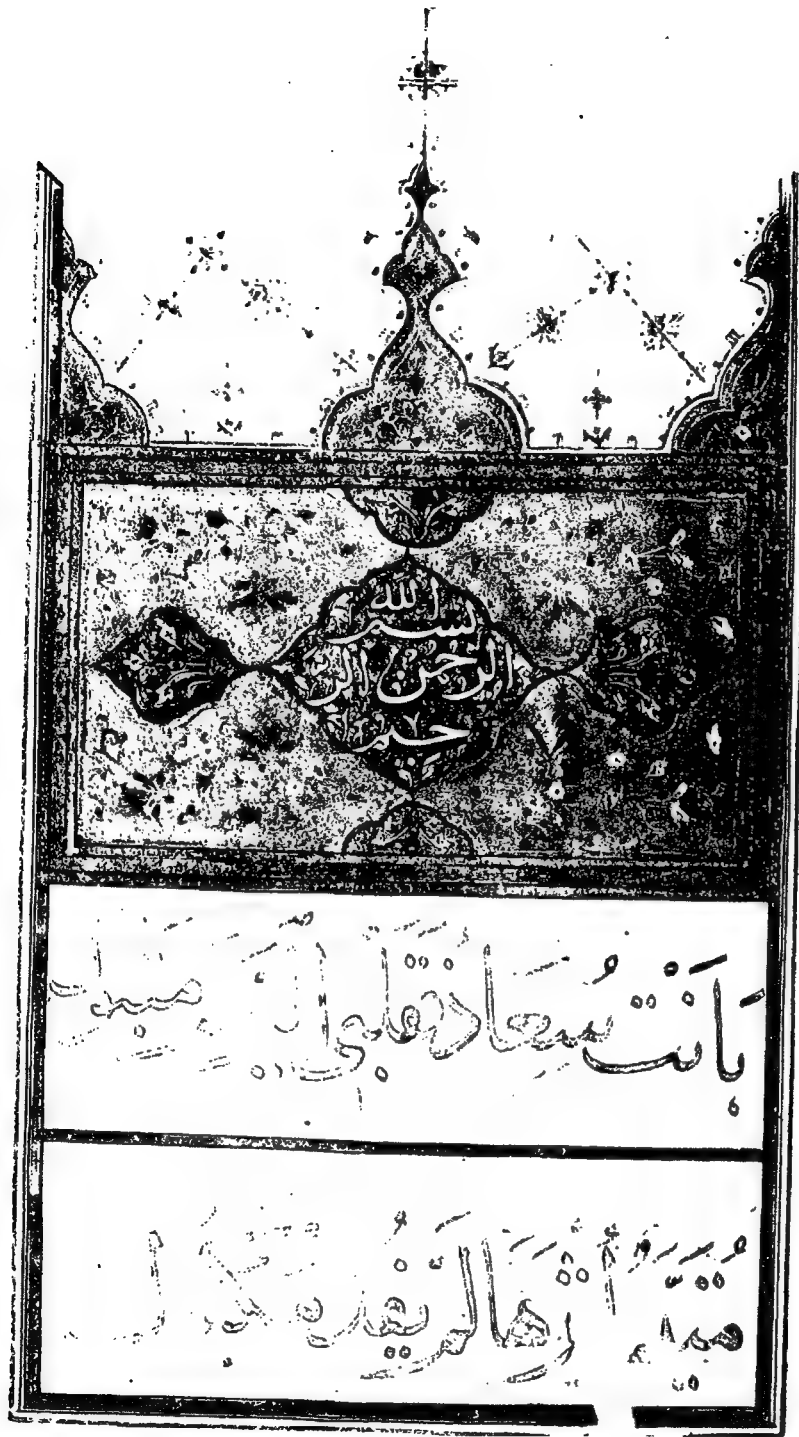 بسم الله
الرحمن الر
حيم
بَانَتْ سُعَادُ فَقَلْبِي الْيَوْمَ مَتْبُول
مُتَيَّمٌ أثرَهَا لَمْ يُفْدَ مَكْبُول